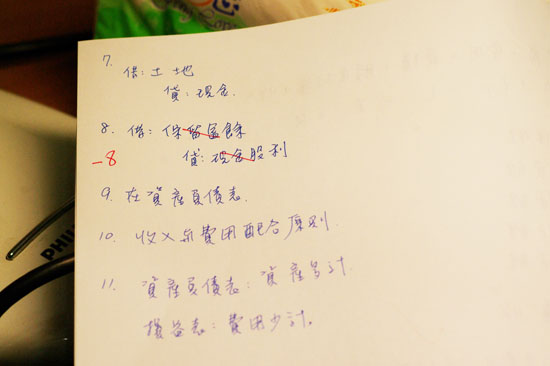 7.
借：土地
貸：現金.
8. 借：保留盈餘
-8 貸：現金股利
9. 在資產負債表.
10. 收入與費用配合原則.
11. 資產負債表：資產多計.
損益表：費用少計。
PHI